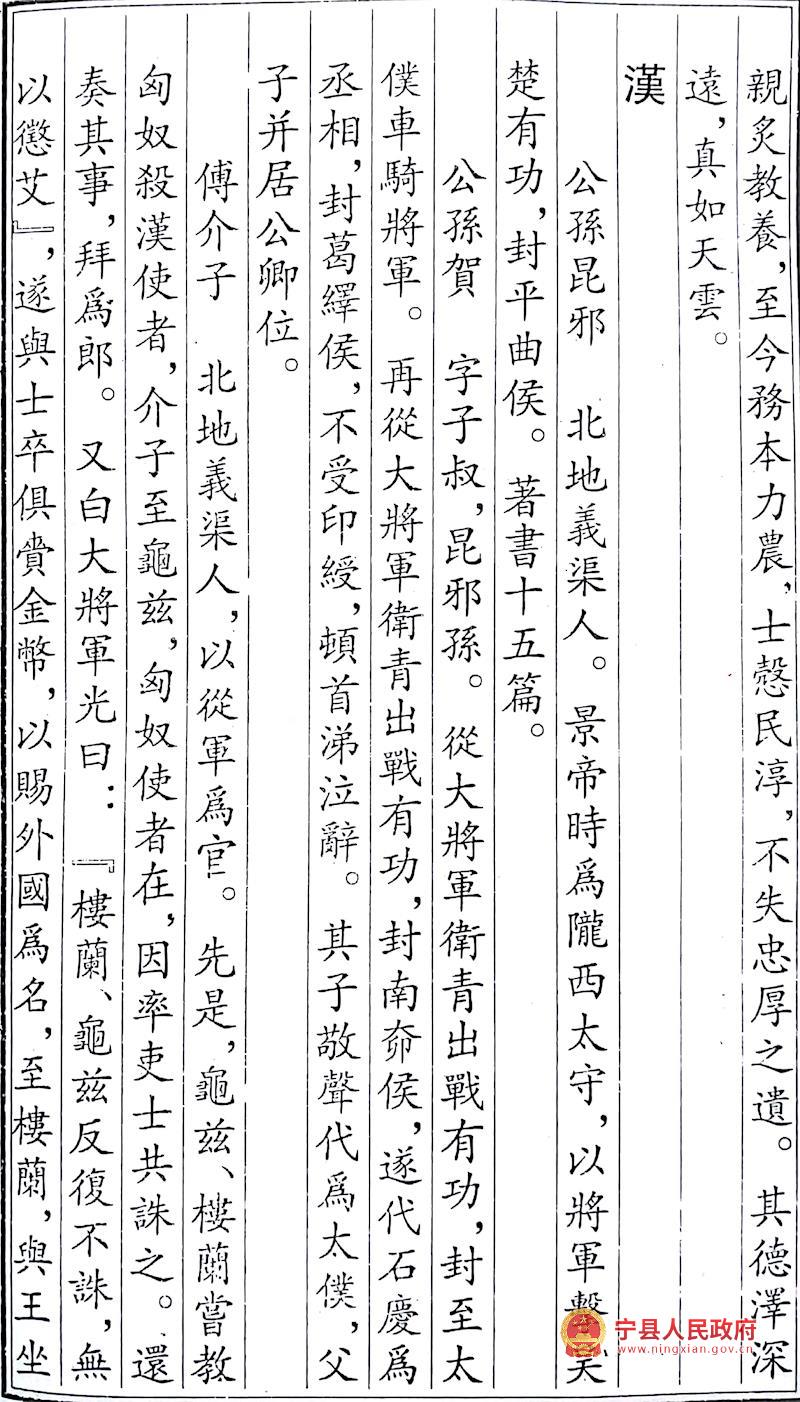 親炙教養，至今務本力農，士慤民淳，不失忠厚之遺。其德澤深
遠，真如天雲。
漢
公孫昆邪　北地義渠人。景帝時爲隴西太守，以將軍擊吴
楚有功，封平曲侯。著書十五篇。
公孫賀　字子叔，昆邪孫。從大將軍衛青出戰有功，封至太
僕車騎將軍。再從大將軍衛青出戰有功，封南奅侯，遂代石慶爲
丞相，封葛繹侯，不受印綬，頓首涕泣辭。其子敬聲代爲太僕，父
子并居公卿位。
傅介子　北地義渠人，以從軍爲官。先是，龜兹、樓蘭嘗教
匈奴殺漢使者，介子至龜兹，匈奴使者在，因率吏士共誅之。還
奏其事，拜爲郎。又白大將軍光曰：『樓蘭、龜兹反復不誅，無
以懲艾』，遂與士卒俱賫金幣，以賜外國爲名，至樓蘭，與王坐
宁县人民政府
www.ningxian.gov.cn